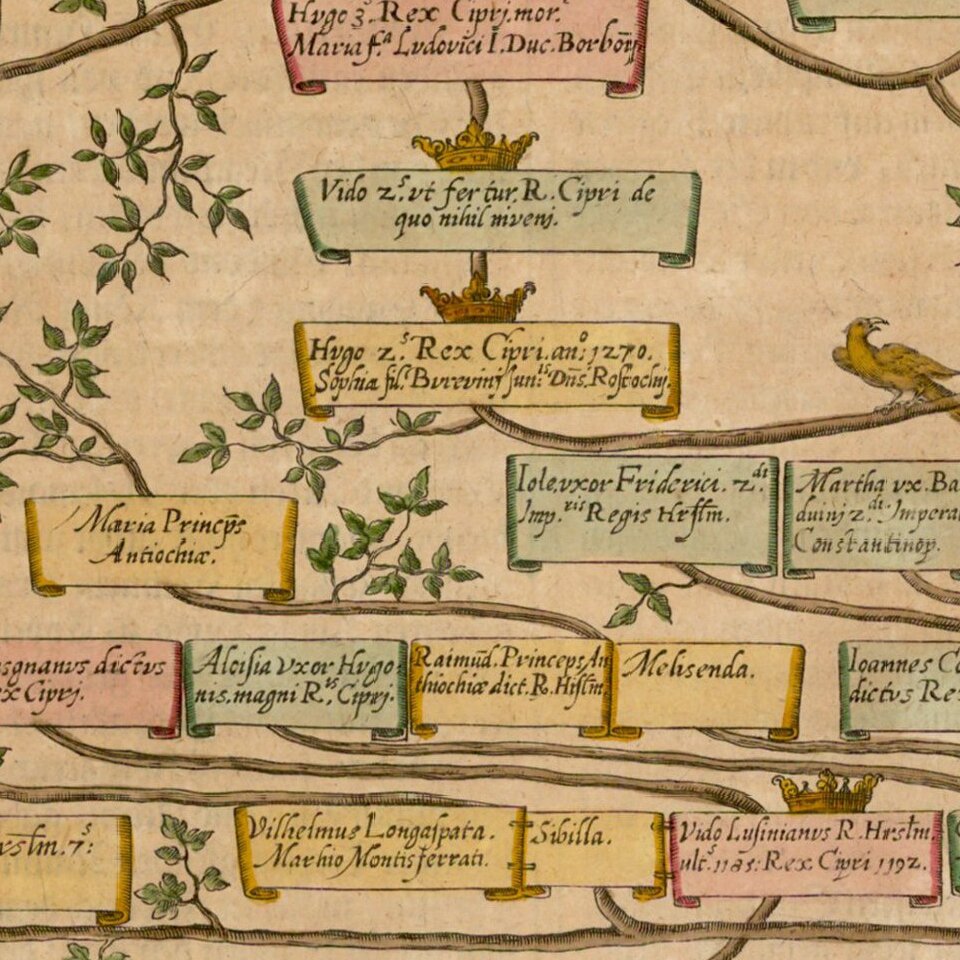 Hvgo 3.s Rex Ciprj. mor.
Maria f.a Lvdovici I. Duc. Borboñ
Vido 2.s vt fertur. R. Cipri de
quo nihil niveni.
Hvgo 2.s Rex Cipri. an.o 1270.
Sophiæ fil. Burevinj jun. Dns. Rostochij.
Iole. vxor Friderici. 2.di
Imp.ris Regis Hrsłm.
Martha vx. Ba
duinj 2.di Impera
Constantinop.
Mæria Princeps
Antiochiæ.
sgnanvs dictvs
ex Ciprj.
Alcisia Vxor Hvgo
nis. magni R.is Ciprj.
Raimūd. Princeps An
thiochiæ dict. R. Hrsłm
Melisenda.
Ioannes Co
dictvs Re
rsłm. 7.s
Vilhelmus Longaspata.
Marhio Montisferrati.
Sibilla.
Vido Lusinianvs R. Hrsłm.
ult.s 1185: Rex Cipri 1192.